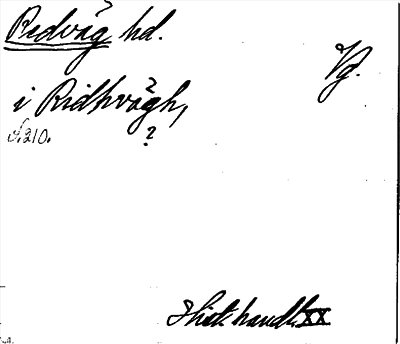 Redväg hd.
Vg.
i Ridhvägh,
s. 210.
?
Hist. handl. XX